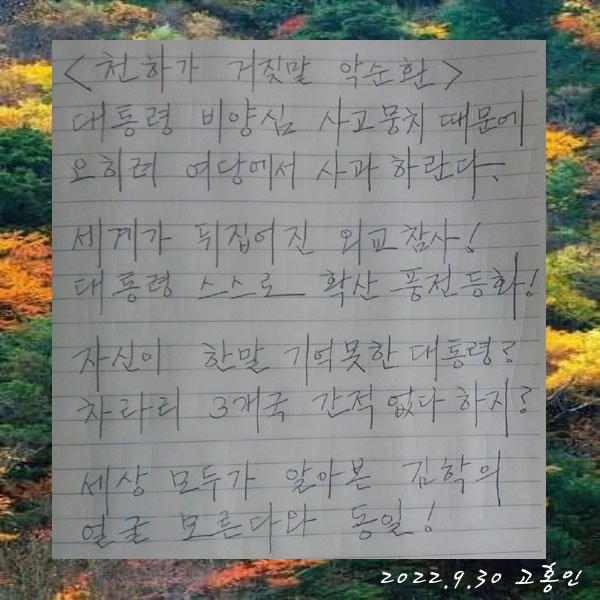 <천하가 거짓말 악순환>
대통령 비양심 사고뭉치 때문에
오히려 여당에서 사과 하란다.
세계가 뒤집어진 외교참사!
대통령 스스로 확산 풍전등화!
자신이 한말 기억못한 대통령?
차라리 3개국 간적 없다 하지?
세상 모두가 알아본 김학의
얼굴 모른다와 동일!
2022.9.30 고홍인